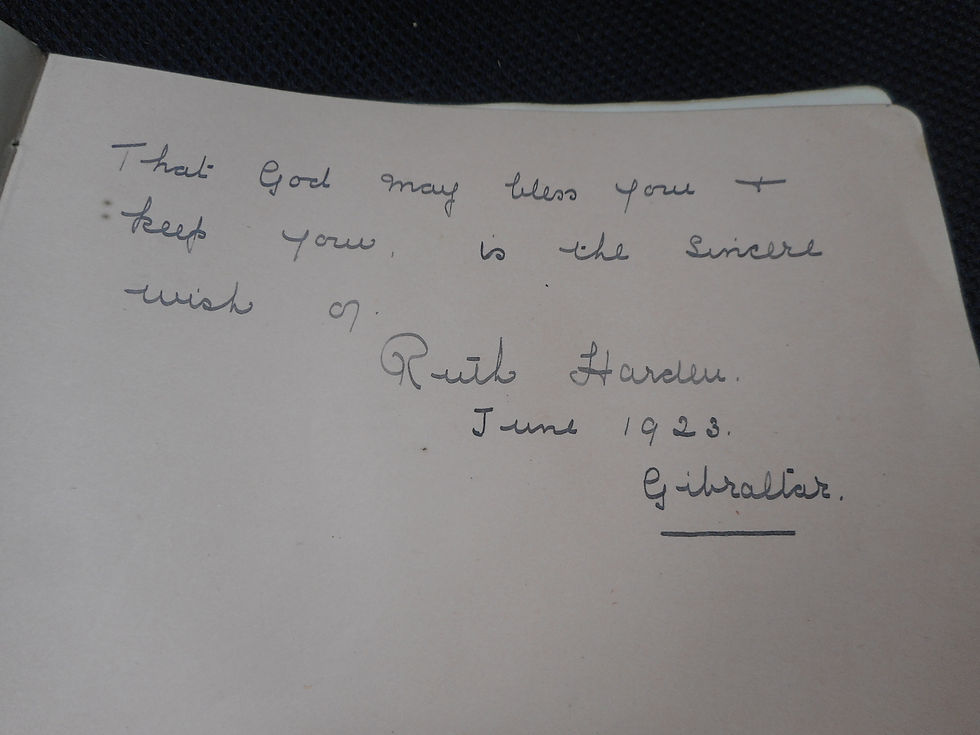 That God may bless you +
keep you, is the sincere
wish of.
Ruth Harden.
June 1923.
Gibraltar.